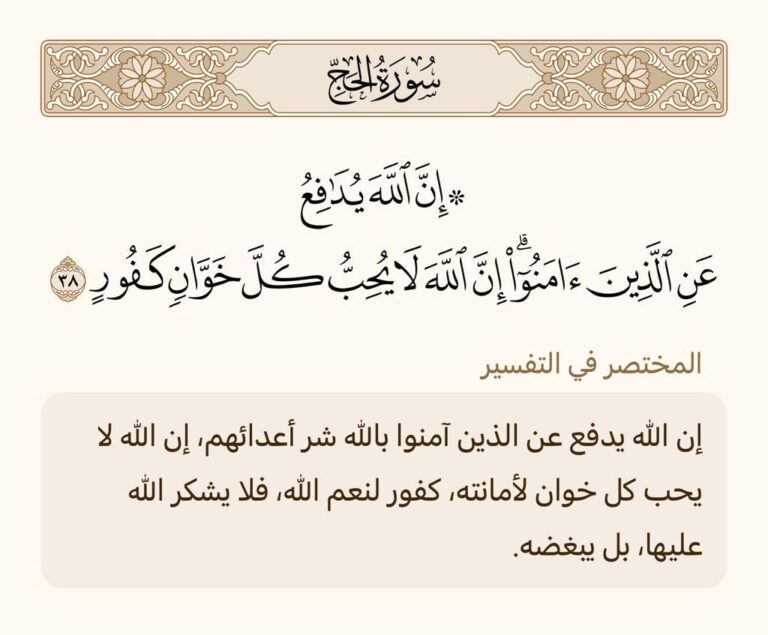 سُورَةُ الحَجِّ
۞ إِنَّ ٱللَّهَ يُدَٰفِعُ
عَنِ ٱلَّذِينَ ءَامَنُوٓا۟ ۗ إِنَّ ٱللَّهَ لَا يُحِبُّ كُلَّ خَوَّانٍ كَفُورٍ ٣٨
المختصر في التفسير
إن الله يدفع عن الذين آمنوا بالله شر أعدائهم، إن الله لا
يحب كل خوان لأمانته، كفور لنعم الله، فلا يشكر الله
عليها، بل يبغضه.